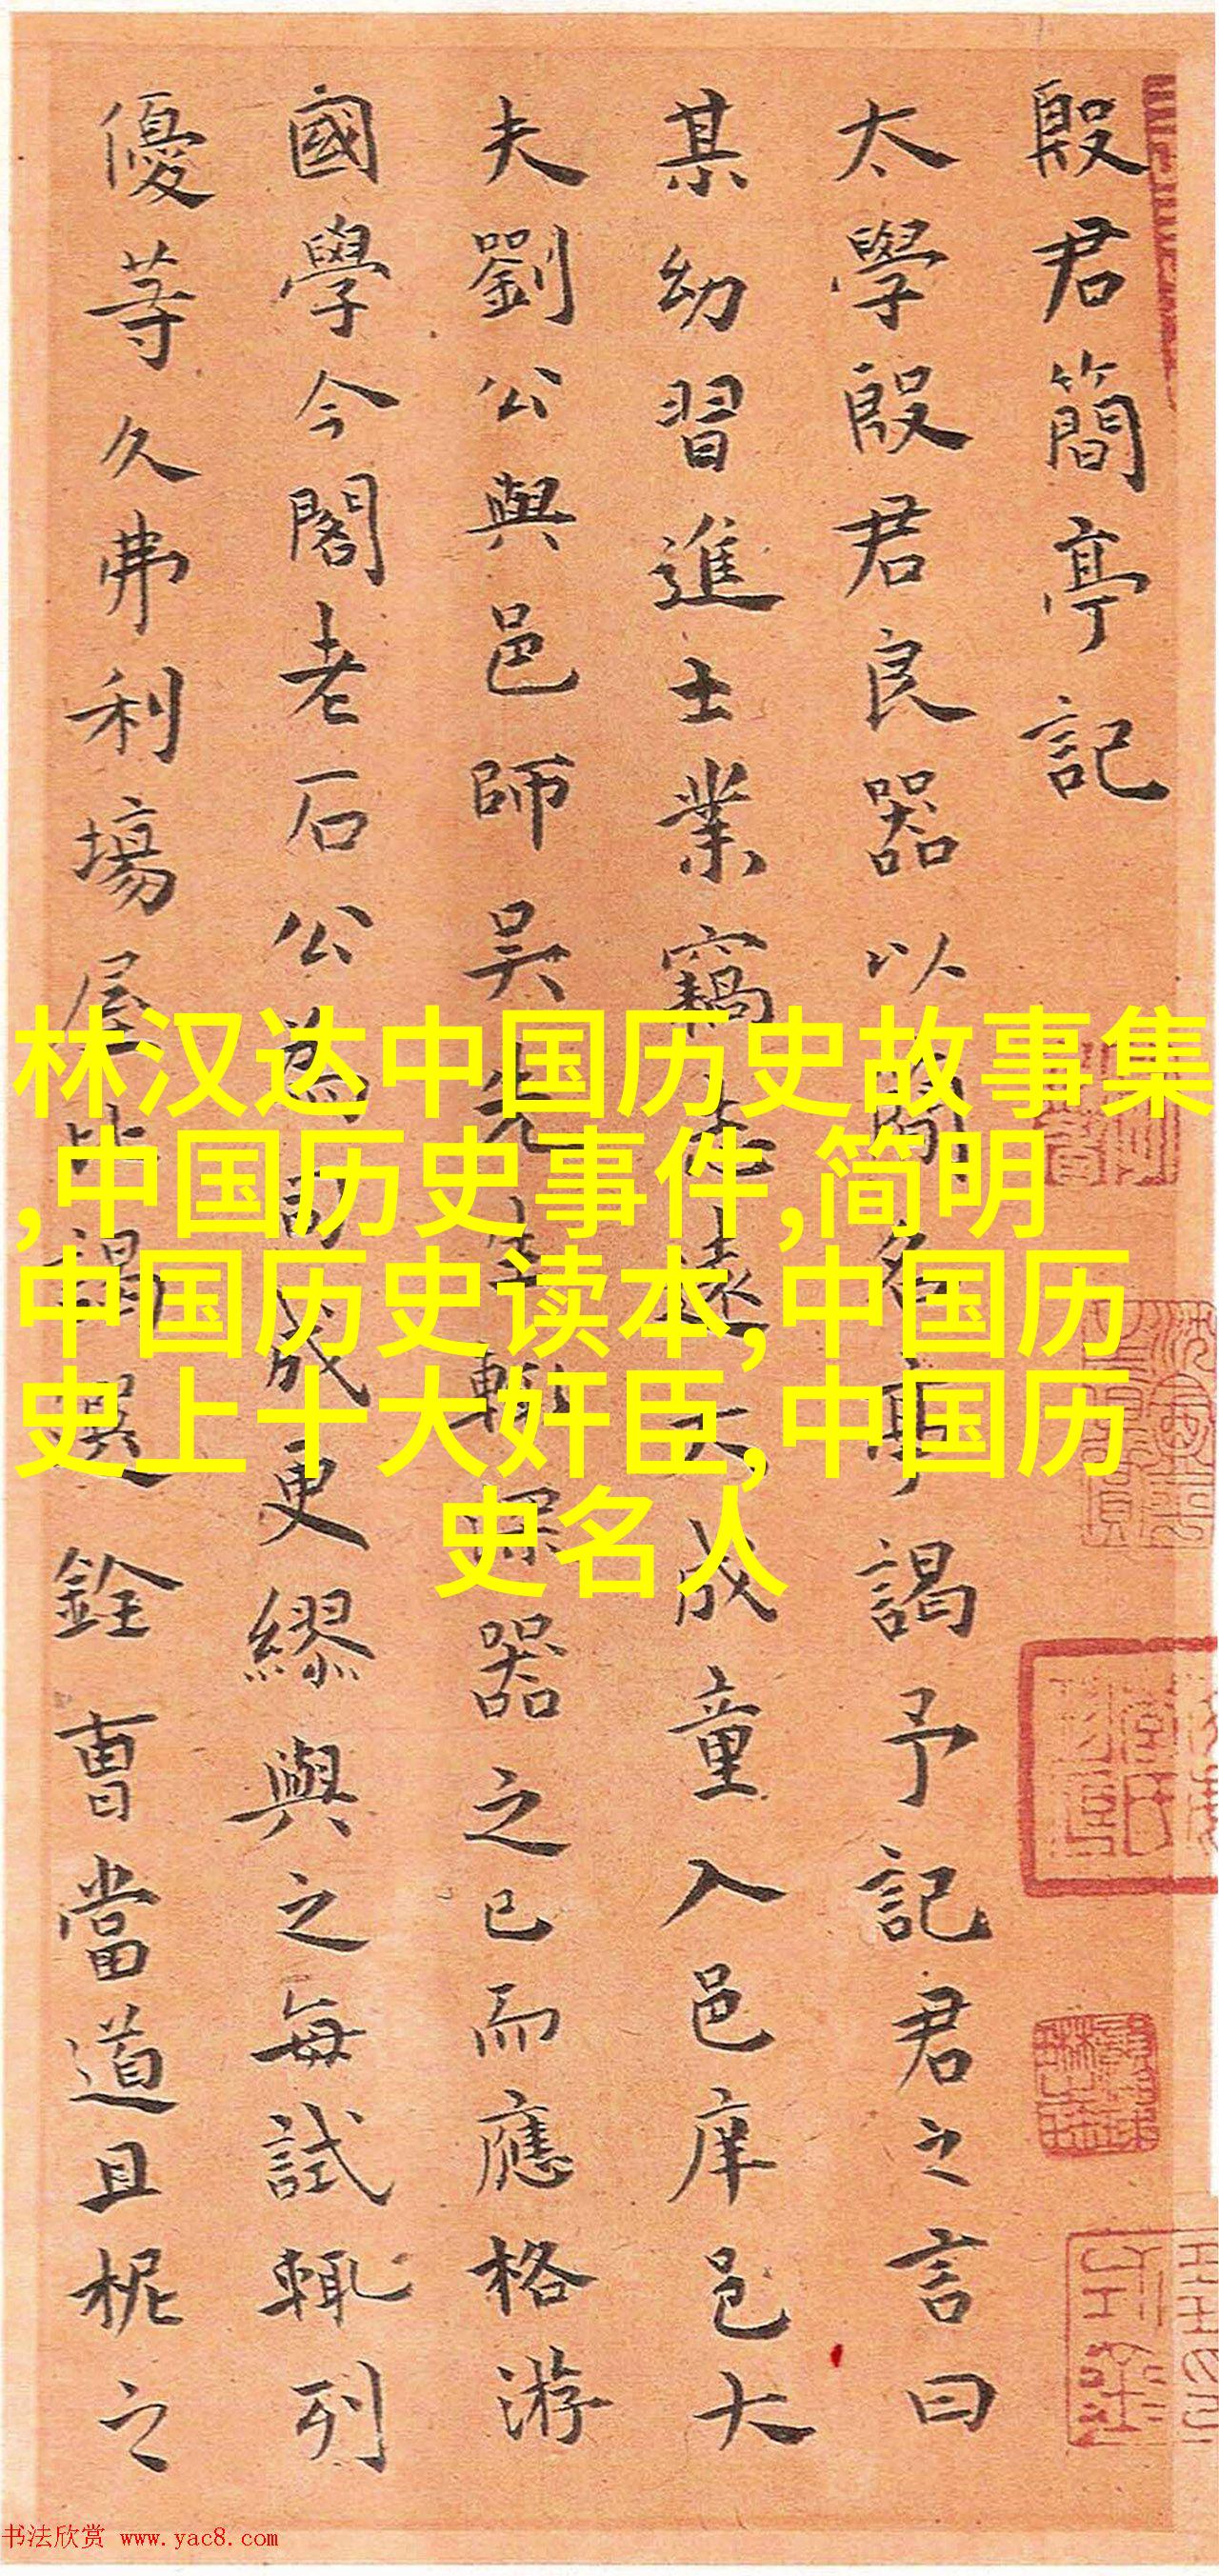 殷君簡亭記
太學殷君良器以簡名亭謁予記君之言曰
某幼習進士業竊遠大成童入邑庠邑大
夫劉公與邑師吳先生器之已而應格游
國學今閣老石公為成更繆與之每試輒列
優等久弗利場屋比謁選銓曹當道且柅之
林汉达中国历史故事集
,中国历史事件,简明
中国历史读本,中国历
史上十大奸臣,中国历
史名人
书法欣赏 www.yac8.com